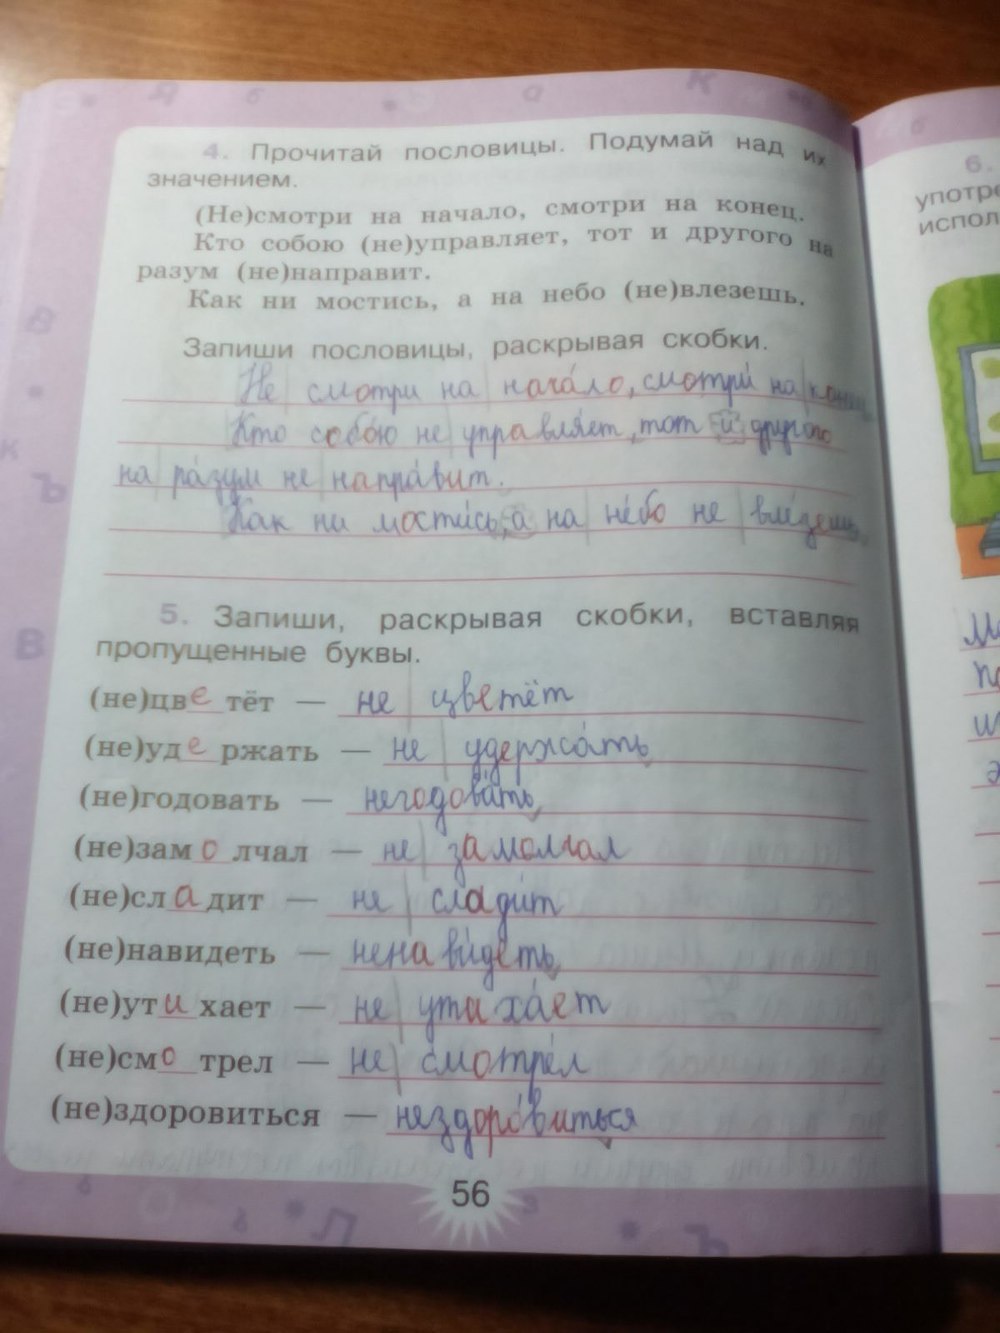 4. Прочитай пословицы. Подумай над их
значением.
(Не)смотри на начало, смотри на конец.
Кто собою (не)управляет, тот и другого на
разум (не)направит.
Как ни мостись, а на небо (не)влезешь.
Запиши пословицы, раскрывая скобки.
Не смотри на начало, смотри на
Кто собою не управляет, тот и другого
на разум не направит.
Как ни мостись, а на небо не
5. Запиши, раскрывая скобки, вставляя
пропущенные буквы.
(не)цве тёт — не цветёт
(не)уде ржать — не удержать
(не)годовать — негодовать
(не)замо лчал — не замолчал
(не)сла дит — не сладит
(не)навидеть — ненавидеть
(не)ути хает — не утихает
(не)смо трел — не смотрел
(не)здоровиться — нездоровиться
56
6.
употре
испол